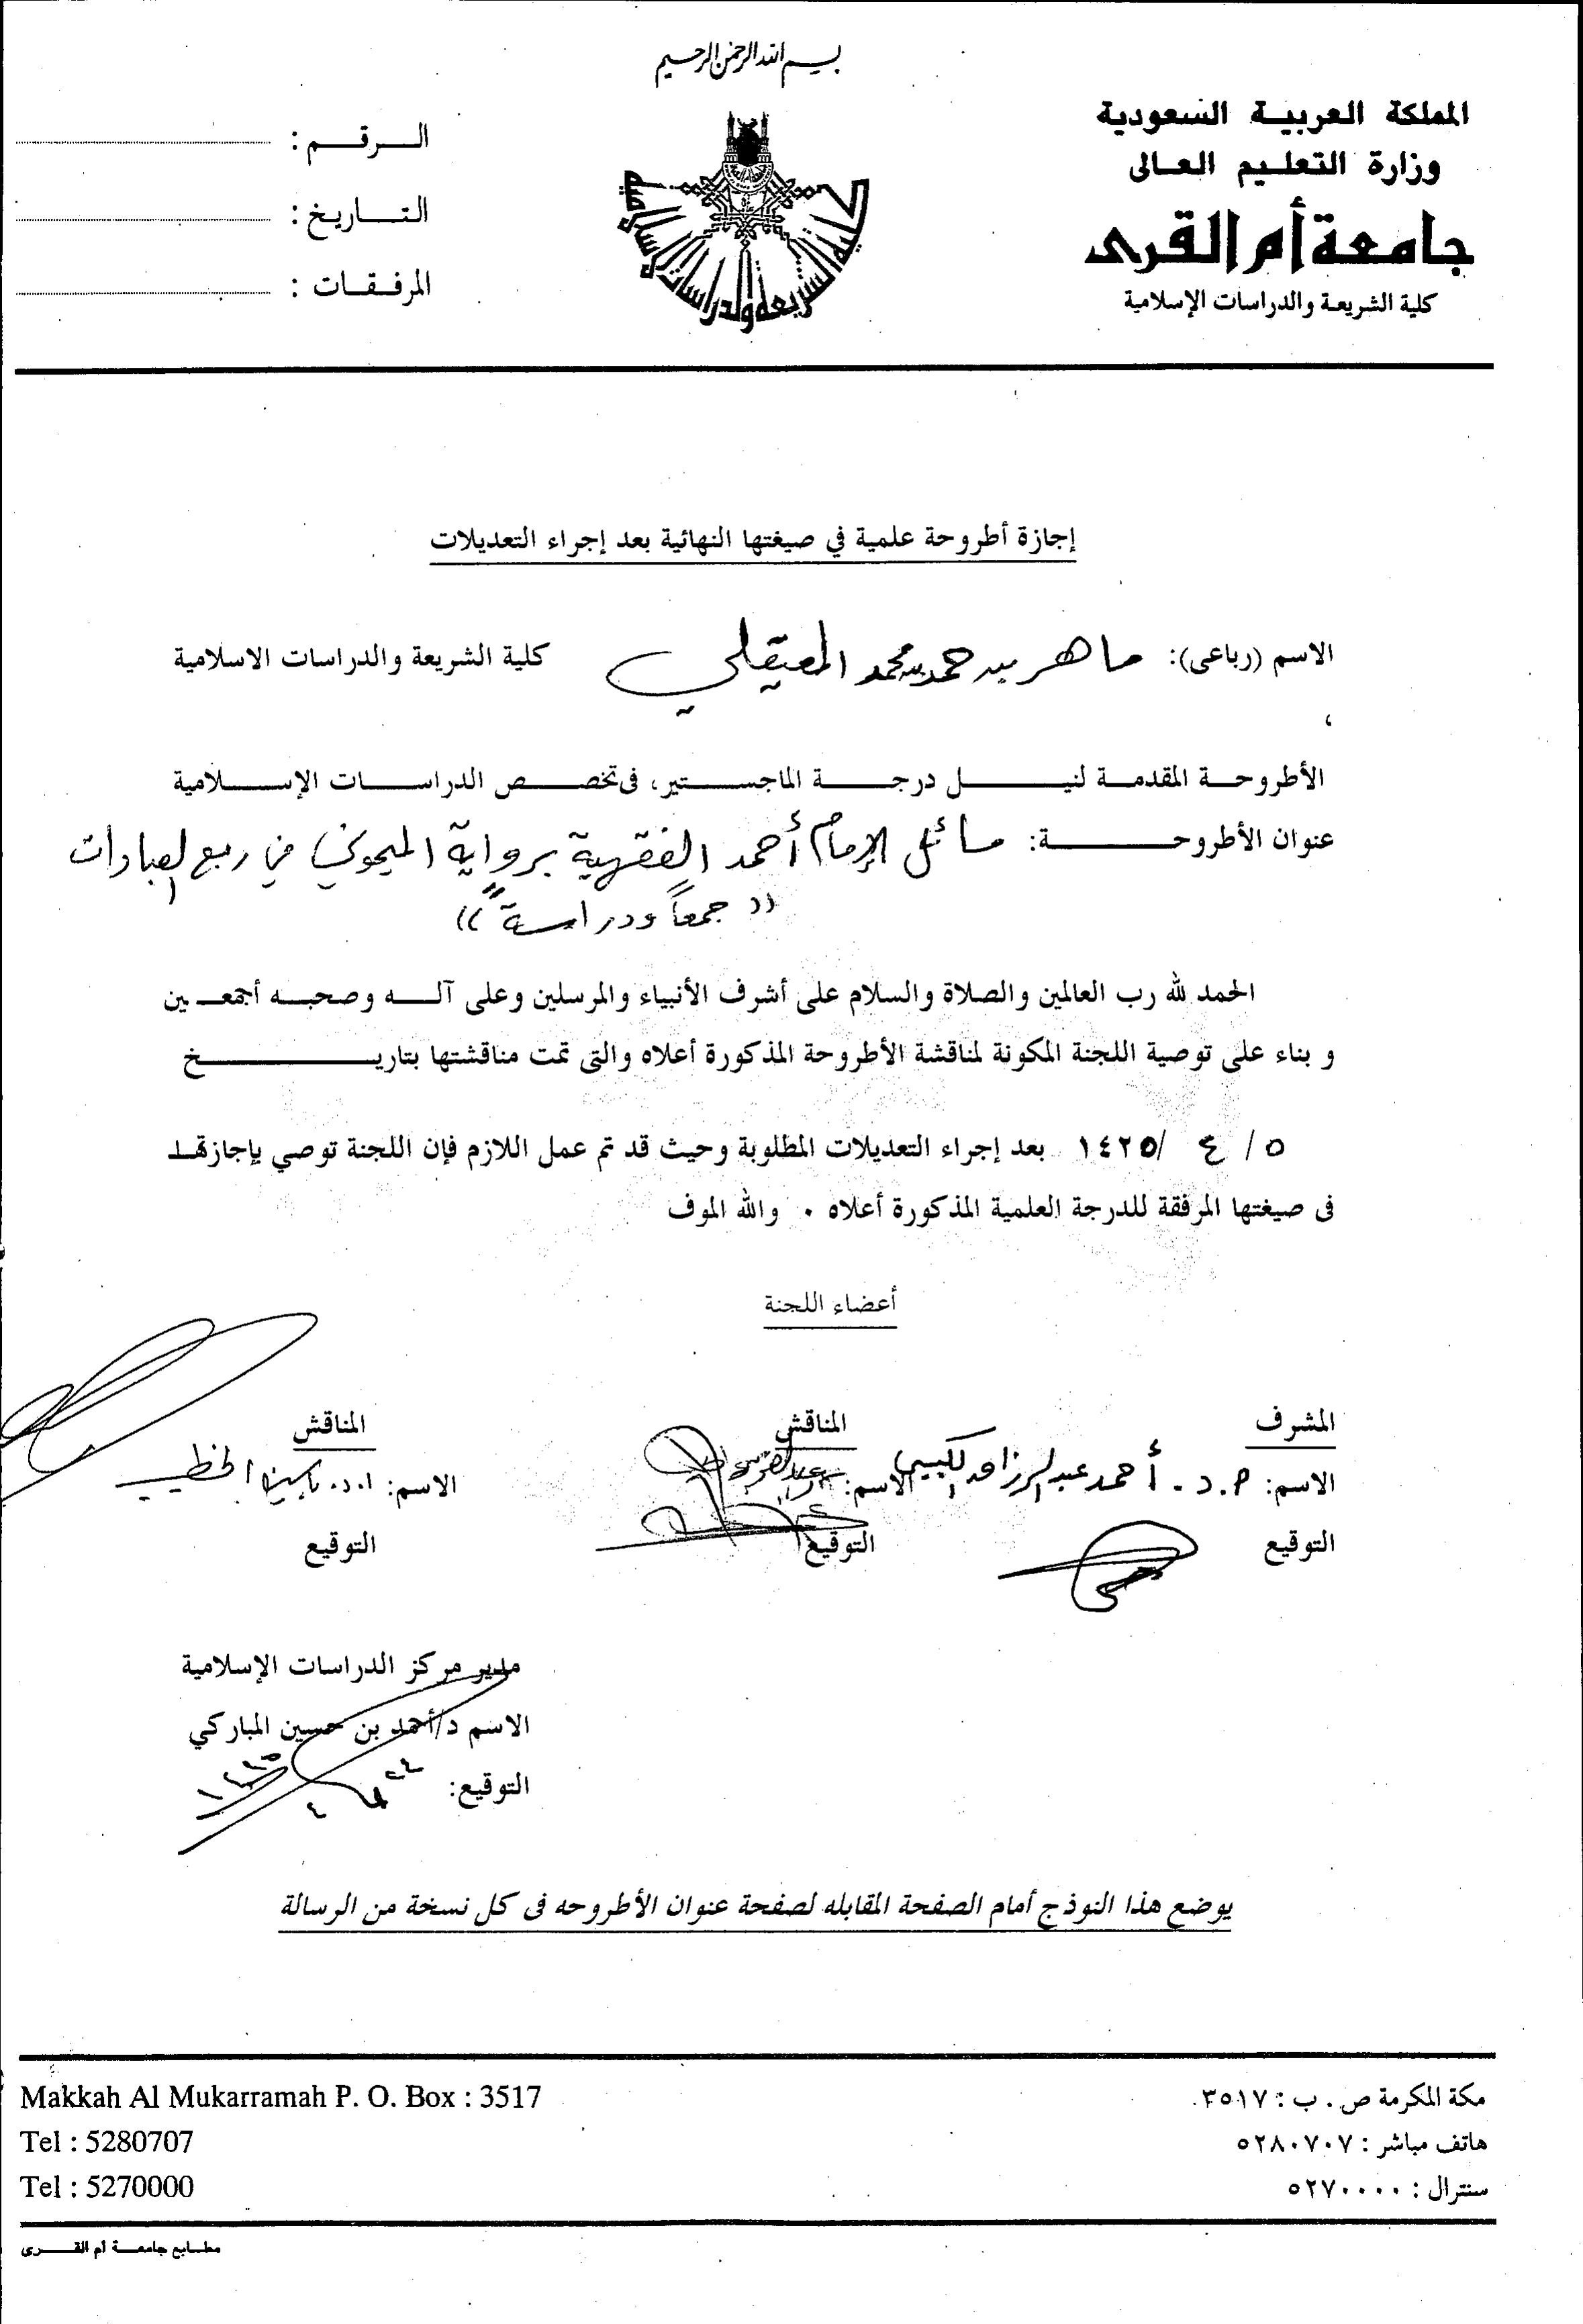 بسم الله الرحمن الرحيم
المملكة العربية السعودية
وزارة التعليم العالى
جامعة أم القرى
كلية الشريعة والدراسات الإسلامية
الرقم :
التاريخ :
المرفقات :
كلية الشريعة والدراسات الإسلامية
إجازة أطروحة علمية في صيغتها النهائية بعد إجراء التعديلات
الاسم (رباعى): ماهر بن حمد بن محمد المعيقلي كلية الشريعة والدراسات الاسلامية
،
الأطروحة المقدمة لنيل درجة الماجستير، فى تخصص الدراسات الإسلامية
عنوان الأطروحة: مسائل الإمام أحمد الفقهية برواية الميموني في ربع العبادات
(( جمعاً ودراسة ))
الحمد لله رب العالمين والصلاة والسلام على أشرف الأنبياء والمرسلين وعلى آله وصحبه أجمعين
و بناء على توصية اللجنة المكونة لمناقشة الأطروحة المذكورة أعلاه والتى تمت مناقشتها بتاريخ
٥ / ٤ /١٤٢٥ بعد إجراء التعديلات المطلوبة وحيث قد تم عمل اللازم فإن اللجنة توصي بإجازتها
فى صيغتها المرفقة للدرجة العلمية المذكورة أعلاه . والله الموف
أعضاء اللجنة
المشرف المناقش المناقش
الاسم: أ.د. أحمد عبد الرزاق الكبيسي الاسم: الاسم: ا.د. ياسين الخطيب
التوقيع التوقيع التوقيع
مدير مركز الدراسات الإسلامية
الاسم د/أحمد بن حسين المباركي
التوقيع:
يوضع هذا النوذج أمام الصفحة المقابله لصفحة عنوان الأطروحه فى كل نسخة من الرسالة
Makkah Al Mukarramah P. O. Box : 3517
Tel : 5280707
Tel : 5270000
مكة المكرمة ص . ب : ٣٥١٧
هاتف مباشر : ٥٢٨٠٧٠٧
سنترال : ٥٢٧٠٠٠٠
مطابع جامعة أم القرى